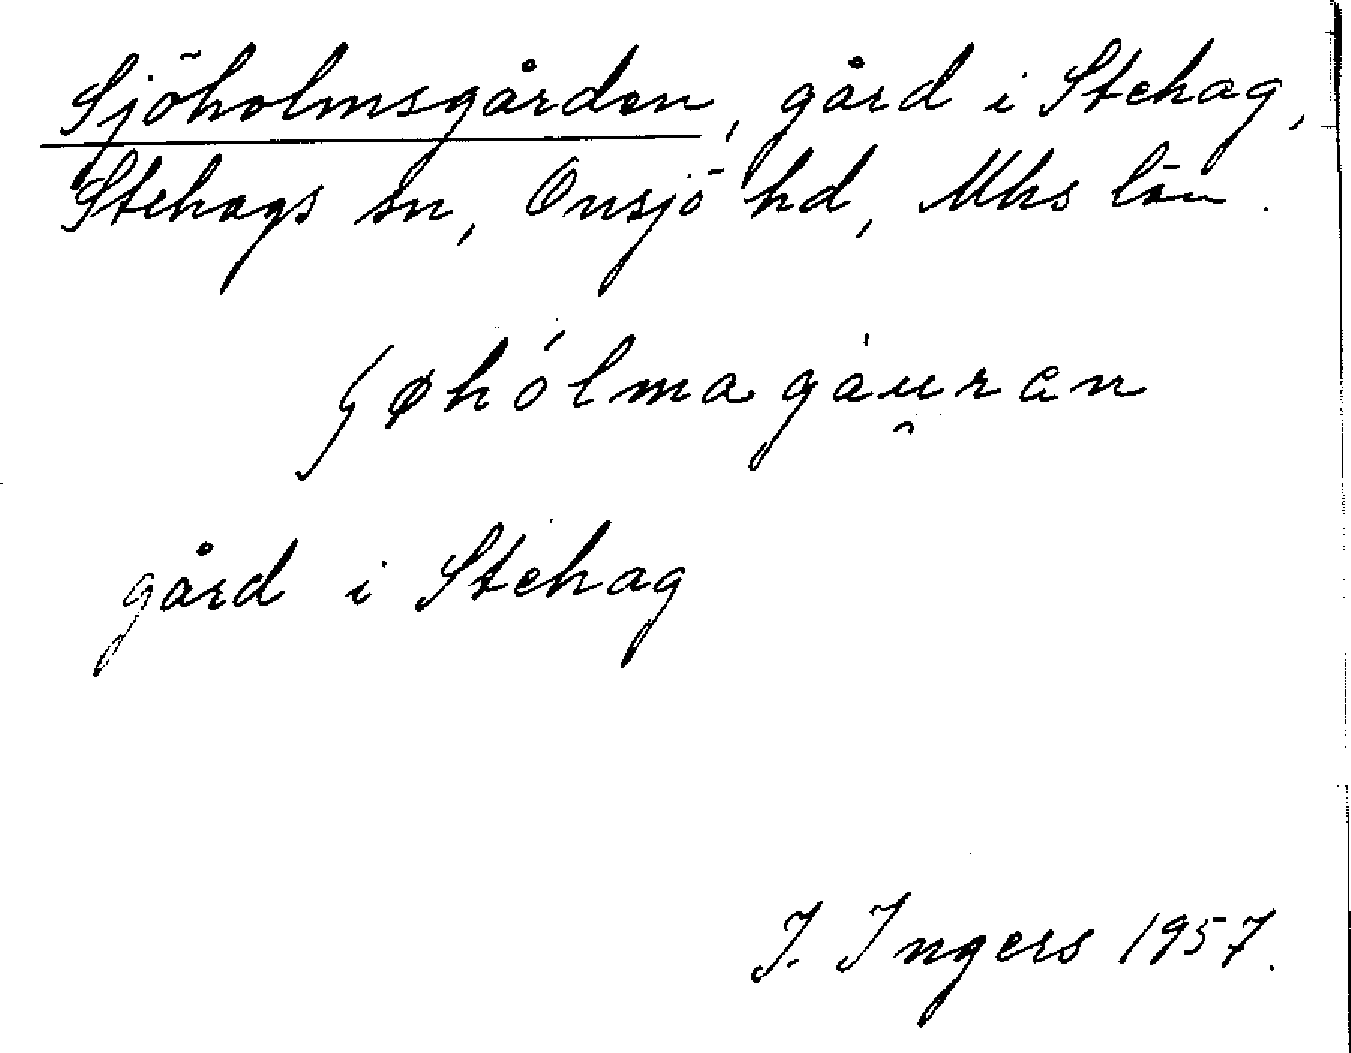 Sjöholmsgården, gård i Stehag,
Stehags sn, Onsjö hd, Mhs län.
gård i Stehag
I. Ingers 1957.